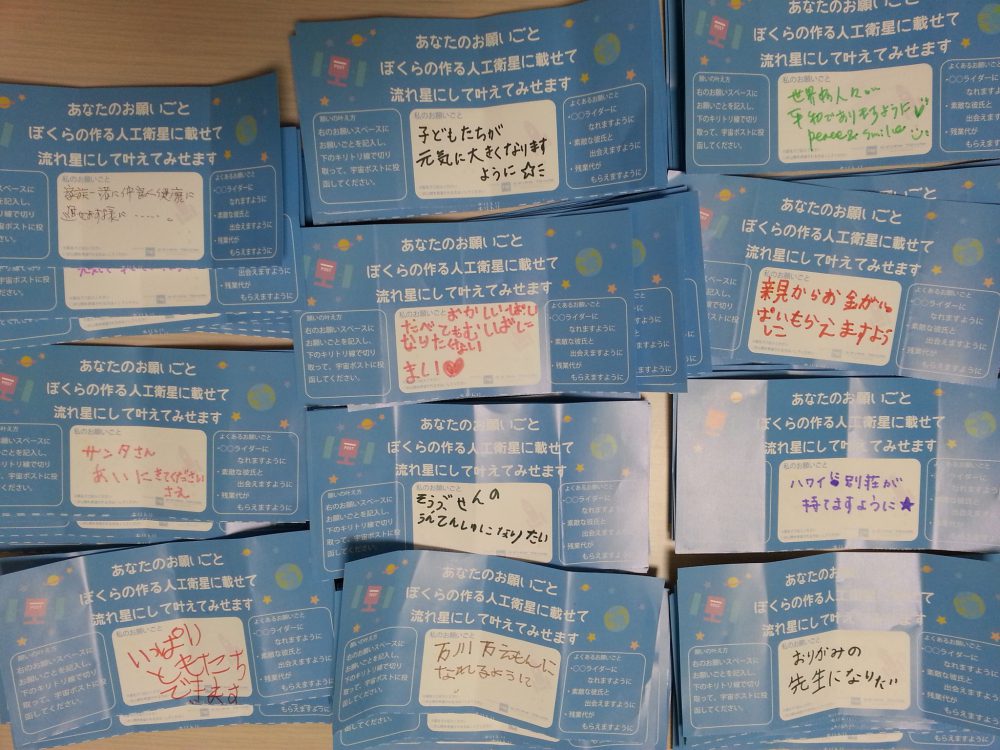 あなたのお願いごと
ぼくらの作る人工衛星に載せて
流れ星にして叶えてみせます
願いの叶え方
右のお願いスペースに
お願いごとを記入し、
下のキリトリ線で切り
取って、宇宙ポストに投
函してください。
POST
私のお願いごと
子どもたちが
元気に大きくなります
ように☆
よくあるお願いごと
・○○ライダーに
なれますように
・素敵な彼氏と
出会えますように
・残業代が
もらえますように
キリトリ
あなたのお願いごと
ぼくらの作る人工衛星に載せて
流れ星にして叶えてみせます
願いの叶え方
右のお願いスペースに
お願いごとを記入し、
下のキリトリ線で切り
取って、宇宙ポストに投
函してください。
POST
私のお願いごと
世界の人々が
平和でありますように
peace & smile
よくあるお願いごと
・○○ライダーに
なれますように
・素敵な彼氏と
出会えますように
・残業代が
もらえますように
あなたのお願いごと
ぼくらの作る人工衛星に載せて
流れ星にして叶えてみせます
スペースに
を記入し、
リ線で切り
ポストに投
ださい。
私のお願いごと
家族一緒に仲良く健康に
過せます様に……。
よくあるお願いごと
・○○ライダーに
なれますように
・素敵な彼氏と
出会えますように
・残業代が
もらえますように
あなたのお願いごと
ぼくらの作る人工衛星に載せて
流れ星にして叶えてみせます
願いの叶え方
右のお願いスペースに
お願いごとを記入し、
下のキリトリ線で切り
取って、宇宙ポストに投
函してください。
私のお願いごと
おかしいっぱい
たべてもむしばに
なりたくない
まい♥
よくあるお願いごと
・○○ライダーに
なれますように
・素敵な彼氏と
出会えますように
・残業代が
もらえますように
あなたのお願いごと
ぼくらの作る人工衛星に載せて
流れ星にして叶えてみせます
願いの叶え方
右のお願いスペースに
お願いごとを記入し、
下のキリトリ線で切り
取って、宇宙ポストに投
函してください。
私のお願いごと
親からお金がいっ
ぱいもらえますよう
に
よくあるお願いごと
・○○ライダーに
なれますように
・素敵な彼氏と
出会えますように
・残業代が
もらえますように
あなたのお願いごと
ぼくらの作る人工衛星に載せて
流れ星にして叶えてみせます
私のお願いごと
サンタさん
あいにきてください
さえ
よくあるお願いごと
・○○ライダーに
なれますように
・素敵な彼氏と
出会えますように
・残業代が
もらえますように
あなたのお願いごと
ぼくらの作る人工衛星に載せて
流れ星にして叶えてみせます
願いの叶え方
右のお願いスペースに
お願いごとを記入し、
下のキリトリ線で切り
取って、宇宙ポストに投
函してください。
私のお願いごと
うんてんしゅになりたい
よくあるお願いごと
・○○ライダーに
なれますように
・素敵な彼氏と
出会えますように
・残業代が
もらえますように
あなたのお願いごと
ぼくらの作る人工衛星に載せて
流れ星にして叶えてみせます
願いの叶え方
右のお願いスペースに
お願いごとを記入し、
下のキリトリ線で切り
取って、宇宙ポストに投
函してください。
私のお願いごと
ハワイに別荘が
持てますように★
よくあるお願いごと
・○○ライダーに
なれますように
・素敵な彼氏と
出会えますように
・残業代が
もらえますように
あなたのお願いごと
ぼくらの作る人工衛星に載せて
流れ星にして叶えてみせます
願いの叶え方
右のお願いスペースに
お願いごとを記入し、
下のキリトリ線で切り
取って、宇宙ポストに投
函してください。
私のお願いごと
いっぱい
ともたち
できます
よくあるお願いごと
・○○ライダーに
なれますように
・素敵な彼氏と
出会えますように
・残業代が
もらえますように
あなたのお願いごと
ぼくらの作る人工衛星に載せて
流れ星にして叶えてみせます
願いの叶え方
右のお願いスペースに
お願いごとを記入し、
下のキリトリ線で切り
取って、宇宙ポストに投
函してください。
私のお願いごと
なれるように
よくあるお願いごと
・○○ライダーに
なれますように
・素敵な彼氏と
出会えますように
・残業代が
もらえますように
あなたのお願いごと
ぼくらの作る人工衛星に載せて
流れ星にして叶えてみせます
願いの叶え方
右のお願いスペースに
お願いごとを記入し、
下のキリトリ線で切り
取って、宇宙ポストに投
函してください。
私のお願いごと
おりがみの
先生になりたい
よくあるお願いごと
・○○ライダーに
なれますように
・素敵な彼氏と
出会えますように
・残業代が
もらえますように